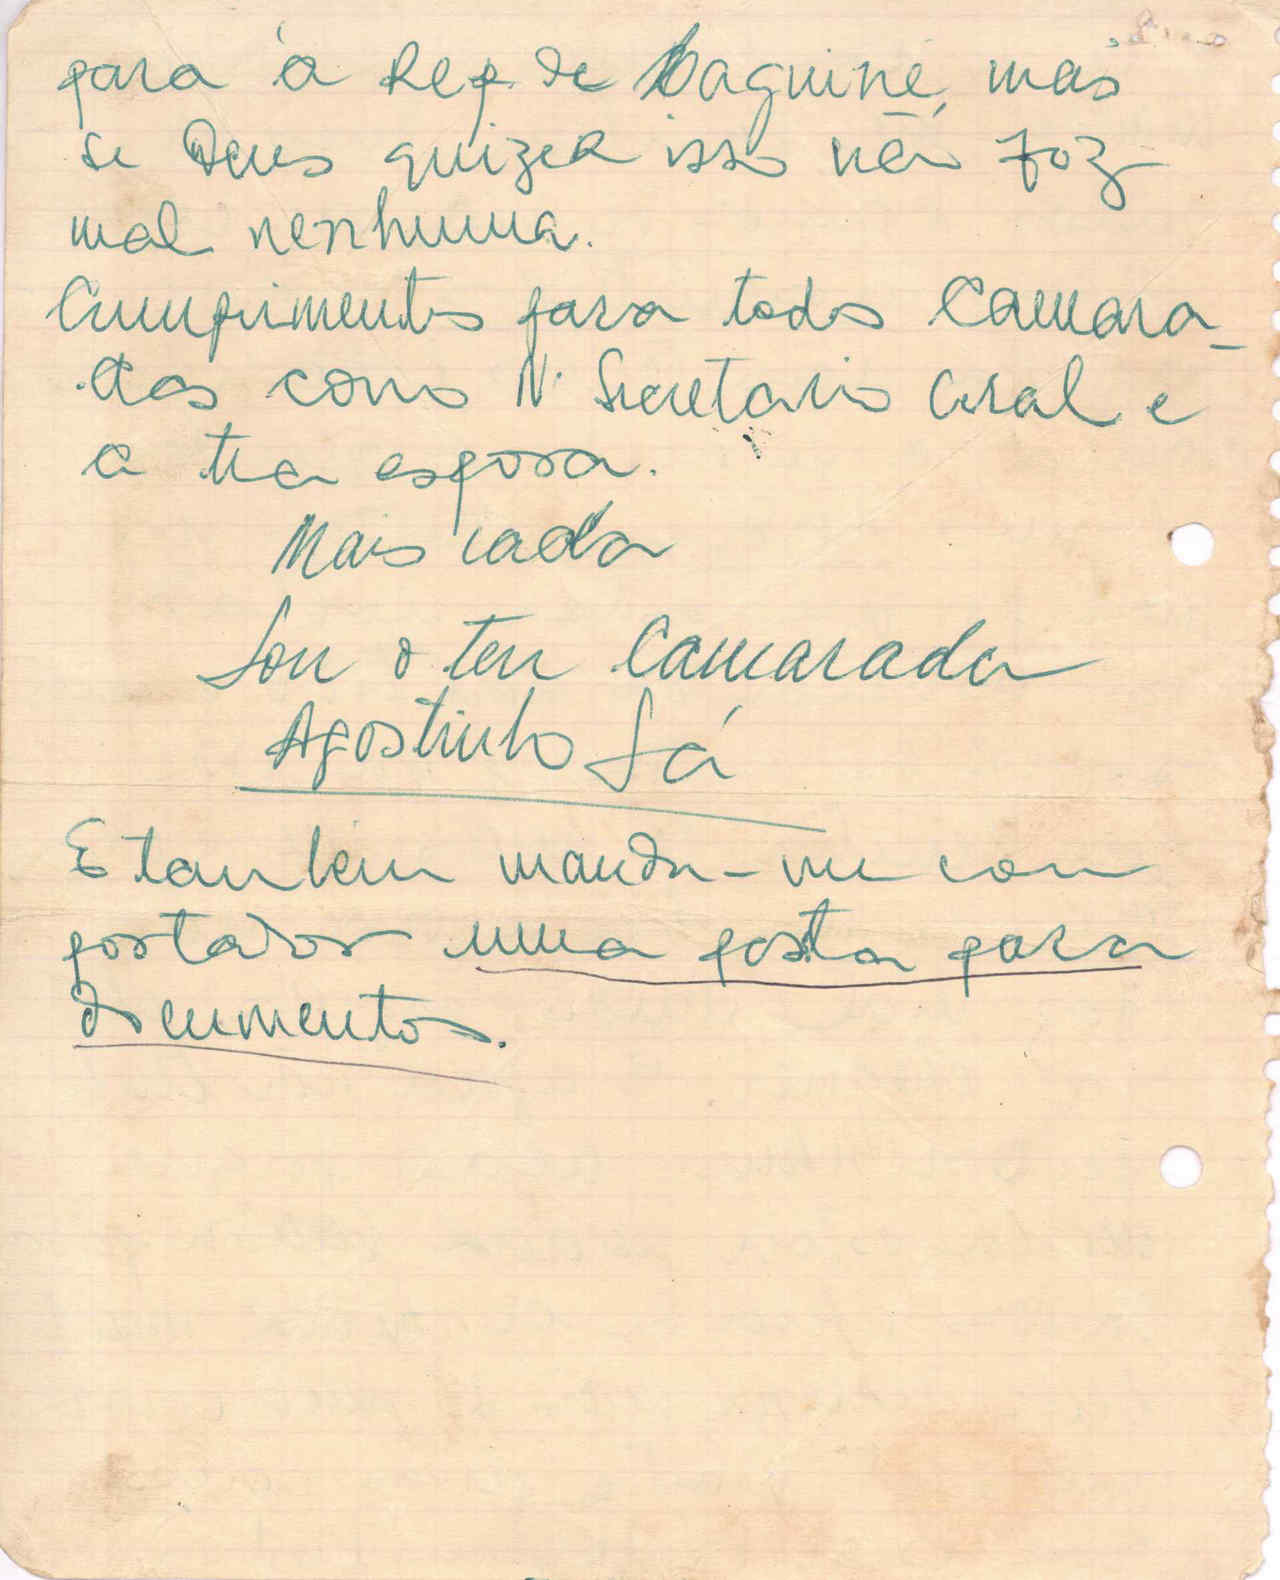 para à Rep. de Daguiné, mas
se Deus quizer isso não foz
mal nenhuma.
Cumprimentos para todos Camara-
das como N. Secretario Geral e
a tua esposa.
Mais nada
Sou o teu Camarada
Agostinho Sá
E tambem manda-me com
portador uma pasta para
documentos.